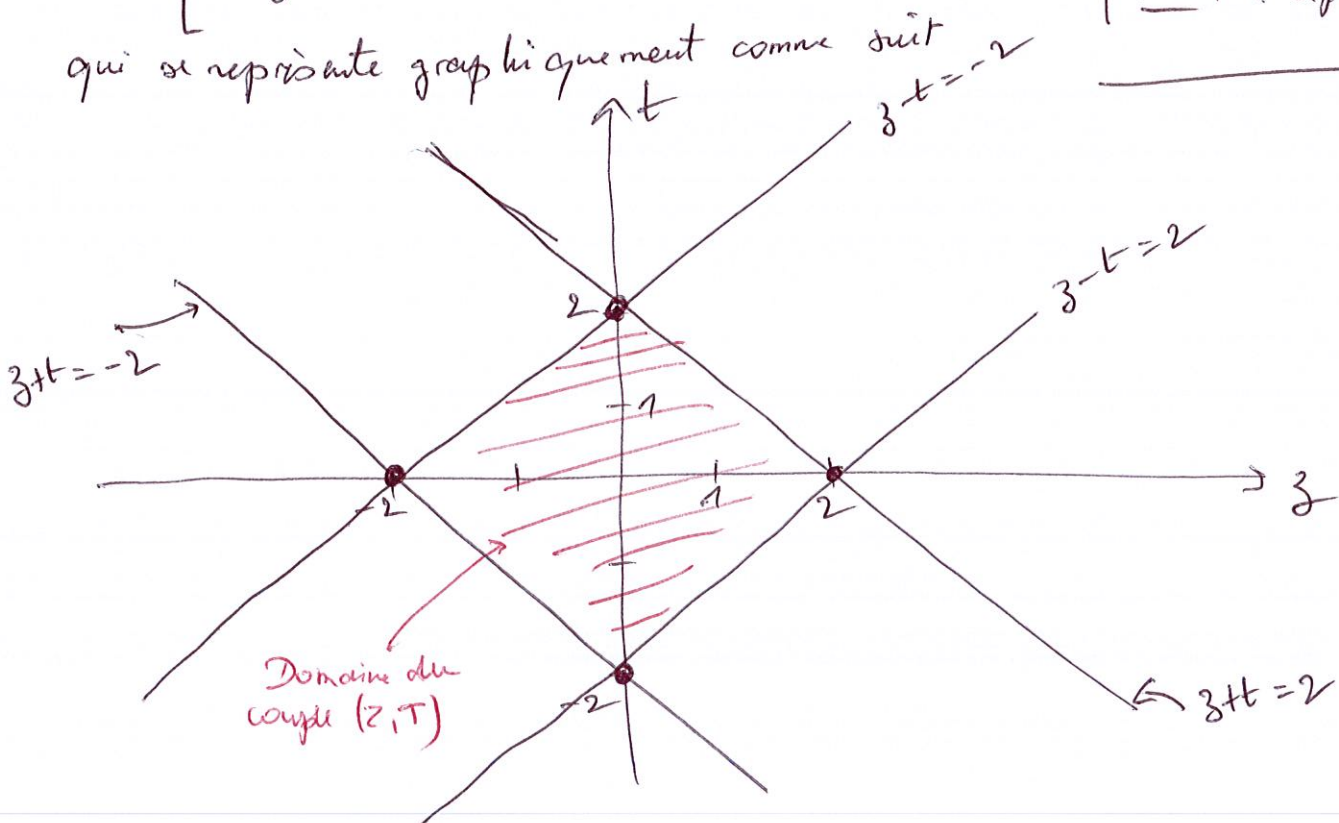 qui se représente graphiquement comme suit
t
z-t=-2
z-t=2
2
z+t=-2
1
-2
1
2
z
Domaine du
couple (Z,T)
-2
z+t=2